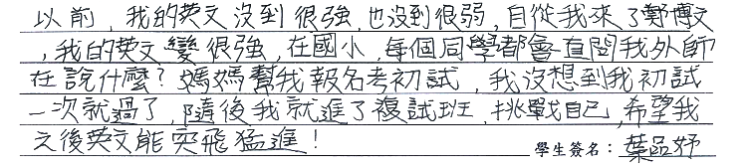 以前,我的英文沒到很強,也沒到很弱,自從我來了鄭博文
,我的英文變很強,在國小,每個同學都會一直問我外師
在說什麼?媽媽幫我報名考初試,我沒想到我初試
一次就過了,隨後我就進了複試班,挑戰自己,希望我
之後英文能突飛猛進!
學生簽名:葉品妤